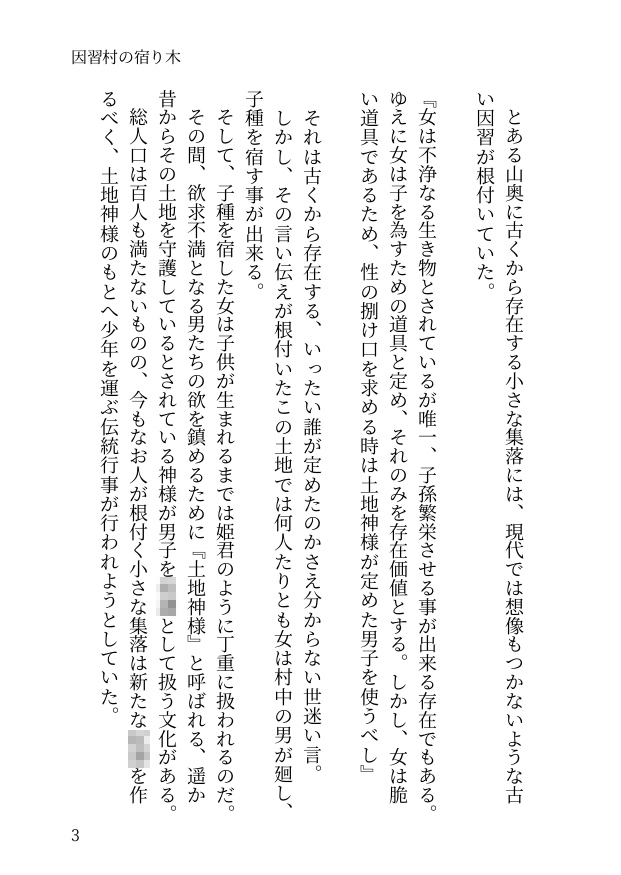 因習村の宿り木
とある山奥に古くから存在する小さな集落には、現代では想像もつかないような古
い因習が根付いていた。
『女は不浄なる生き物とされているが唯一、子孫繁栄させる事が出来る存在でもある。
ゆえに女は子を為すための道具と定め、それのみを存在価値とする。しかし、女は脆
い道具であるため、性の捌け口を求める時は土地神様が定めた男子を使うべし』
それは古くから存在する、いったい誰が定めたのかさえ分からない世迷い言。
しかし、その言い伝えが根付いたこの土地では何人たりとも女は村中の男が廻し、
子種を宿す事が出来る。
そして、子種を宿した女は子供が生まれるまでは姫君のように丁重に扱われるのだ。
その間、欲求不満となる男たちの欲を鎮めるために『土地神様』と呼ばれる、遥か
昔からその土地を守護しているとされている神様が男子を として扱う文化がある。
総人口は百人も満たないものの、今もなお人が根付く小さな集落は新たな を作
るべく、土地神様のもとへ少年を運ぶ伝統行事が行われようとしていた。
3